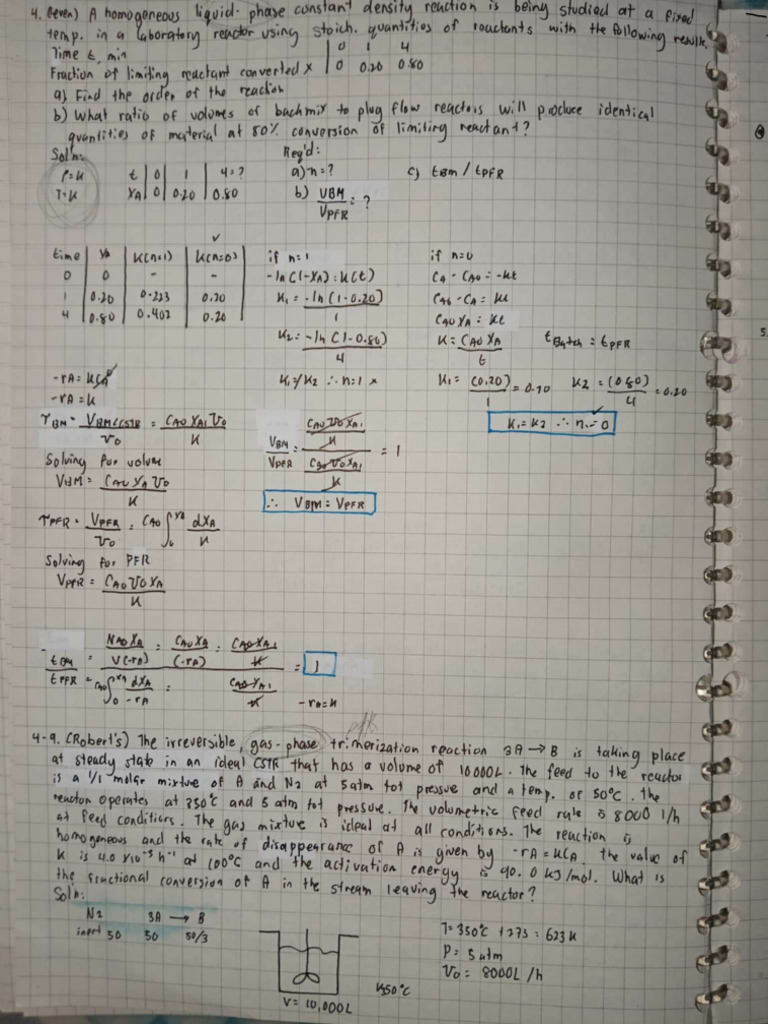 4. (seven) A homogeneous liquid-phase constant density reaction is being studied at a fixed
temp. in a laboratory reactor using stoich. quantities of reactants with the following results.
Time t, min | 0 1 4
Fraction of limiting reactant converted X | 0 0.20 0.80
a) Find the order of the reaction
b) What ratio of volumes of backmix to plug flow reactors will produce identical
quantities of material at 80% conversion of limiting reactant?
Sol'n: Req'd:
P=K t | 0 | 1 | 4=? a) n=? c) tBM / tPFR
T=K XA | 0 | 0.20 | 0.80 b) VBM/VPFR = ?
time | XA | K(n=1) | K(n=0) ✓
0 | 0 | - | -
1 | 0.20 | 0.223 | 0.20
4 | 0.80 | 0.402 | 0.20
if n=1
-ln(1-XA) = K(t)
K1 = -ln(1-0.20)/1
K2 = -ln(1-0.80)/4
K1≠K2 ∴ n=1 x
if n=0
CA - CAO = -kt
CAO - CA = kt
CAO XA = kt
K = CAO XA/t tBatch = tPFR
K1 = (0.20)/1 = 0.20 K2 = (0.80)/4 = 0.20
K1=K2 ∴ n=0 ✓
-rA = KCA⁰
-rA = K
τBM = VBM(CSTR/v0 = CAO XA1 v0/K
Solving for volume
VBM = CAO XA v0/K
VBM/VPFR = (CAO v0 XA1/K)/(CAO v0 XA1/K) = 1
∴ VBM = VPFR
τPFR = VPFR/v0 = CAO ∫0^XA dXA/K
Solving for PFR
VPFR = CAO v0 XA/K
tBM/tPFR = (NAO XA/V(-rA) = CAO XA/(-rA) = CAO XA1/K)/(CAO ∫0^XA dXA/-rA = CAO XA1/K) = 1
-rA=K
4-9. (Robert's) The irreversible, gas-phase trimerization reaction 3A → B is taking place
at steady state in an ideal CSTR that has a volume of 10000L. The feed to the reactor
is a 1/1 molar mixture of A and N2 at 5atm tot pressure and a temp. of 50°C. The
reactor operates at 350°C and 5 atm tot pressure. The volumetric feed rate is 8000 l/h
at feed conditions. The gas mixture is ideal at all conditions. The reaction is
homogeneous and the rate of disappearance of A is given by -rA = KCA. the value of
K is 4.0 x10⁻⁵ h⁻¹ at 100°C and the activation energy is 90.0 KJ/mol. What is
the fractional conversion of A in the stream leaving the reactor?
Sol'n:
N2 3A → B
inert 50 50 50/3
T=350°C +273 = 623K
P = 5 atm
v0 = 8000L /h
350°C
V = 10,000L